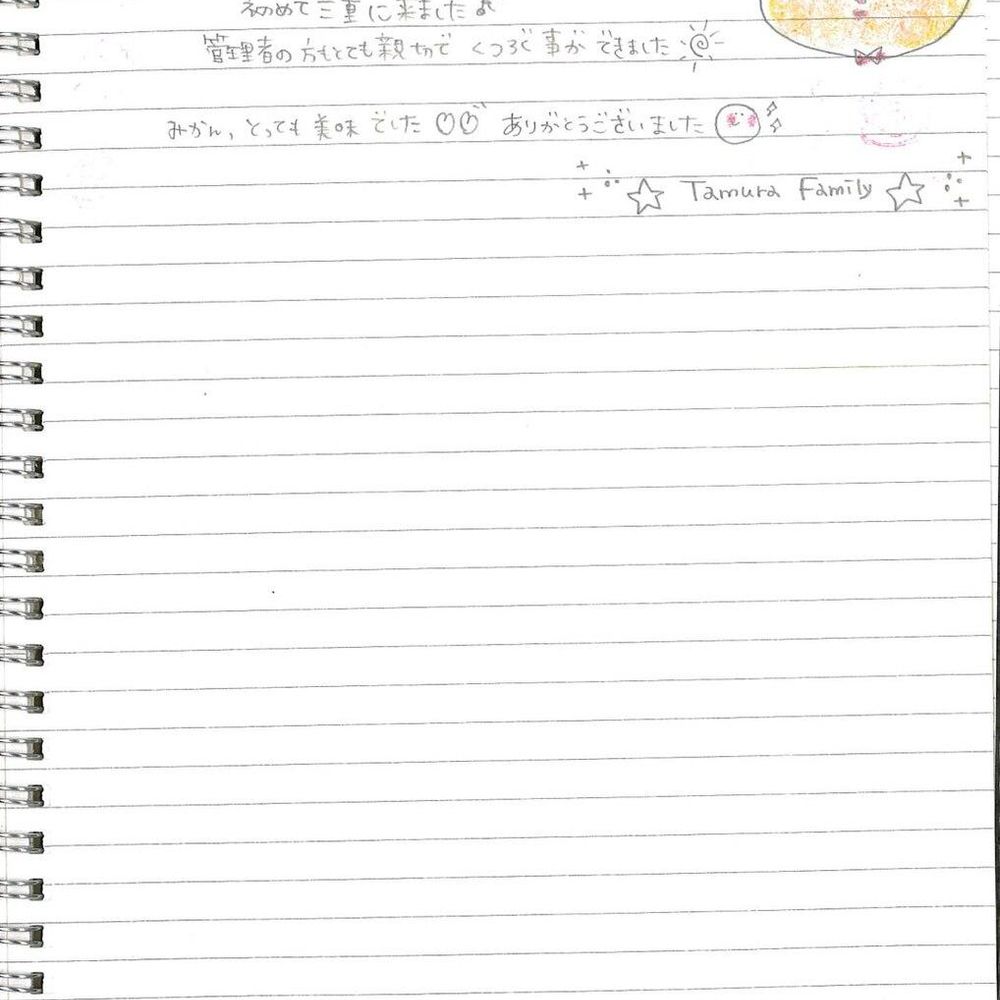 初めて三重に来ました♪
管理者の方もとても親切で くつろぐ事ができました
みかん、とっても美味でした♡♡ ありがとうございました
☆ Tamura Family ☆